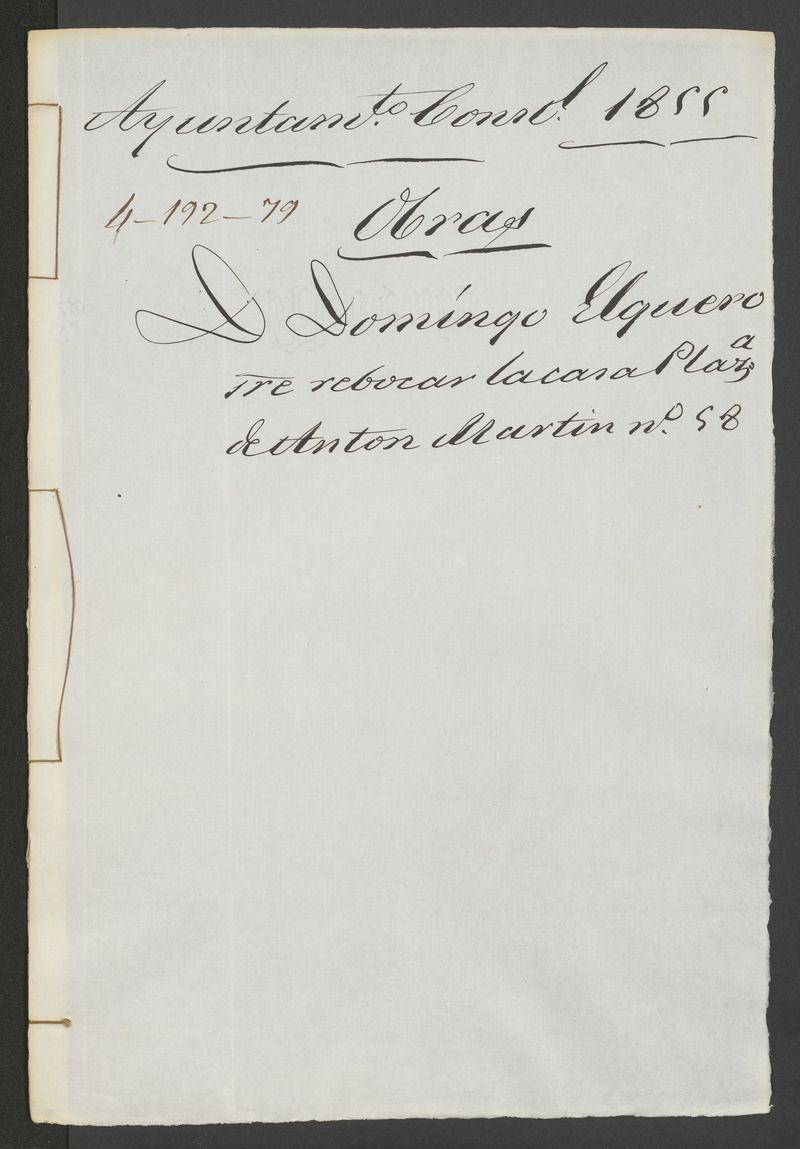 Ayuntam.to Const.l 1855
4-192-79
Obras
D Domingo Elguero
sre rebocar la casa Plaza
de Anton Martin n.o 58